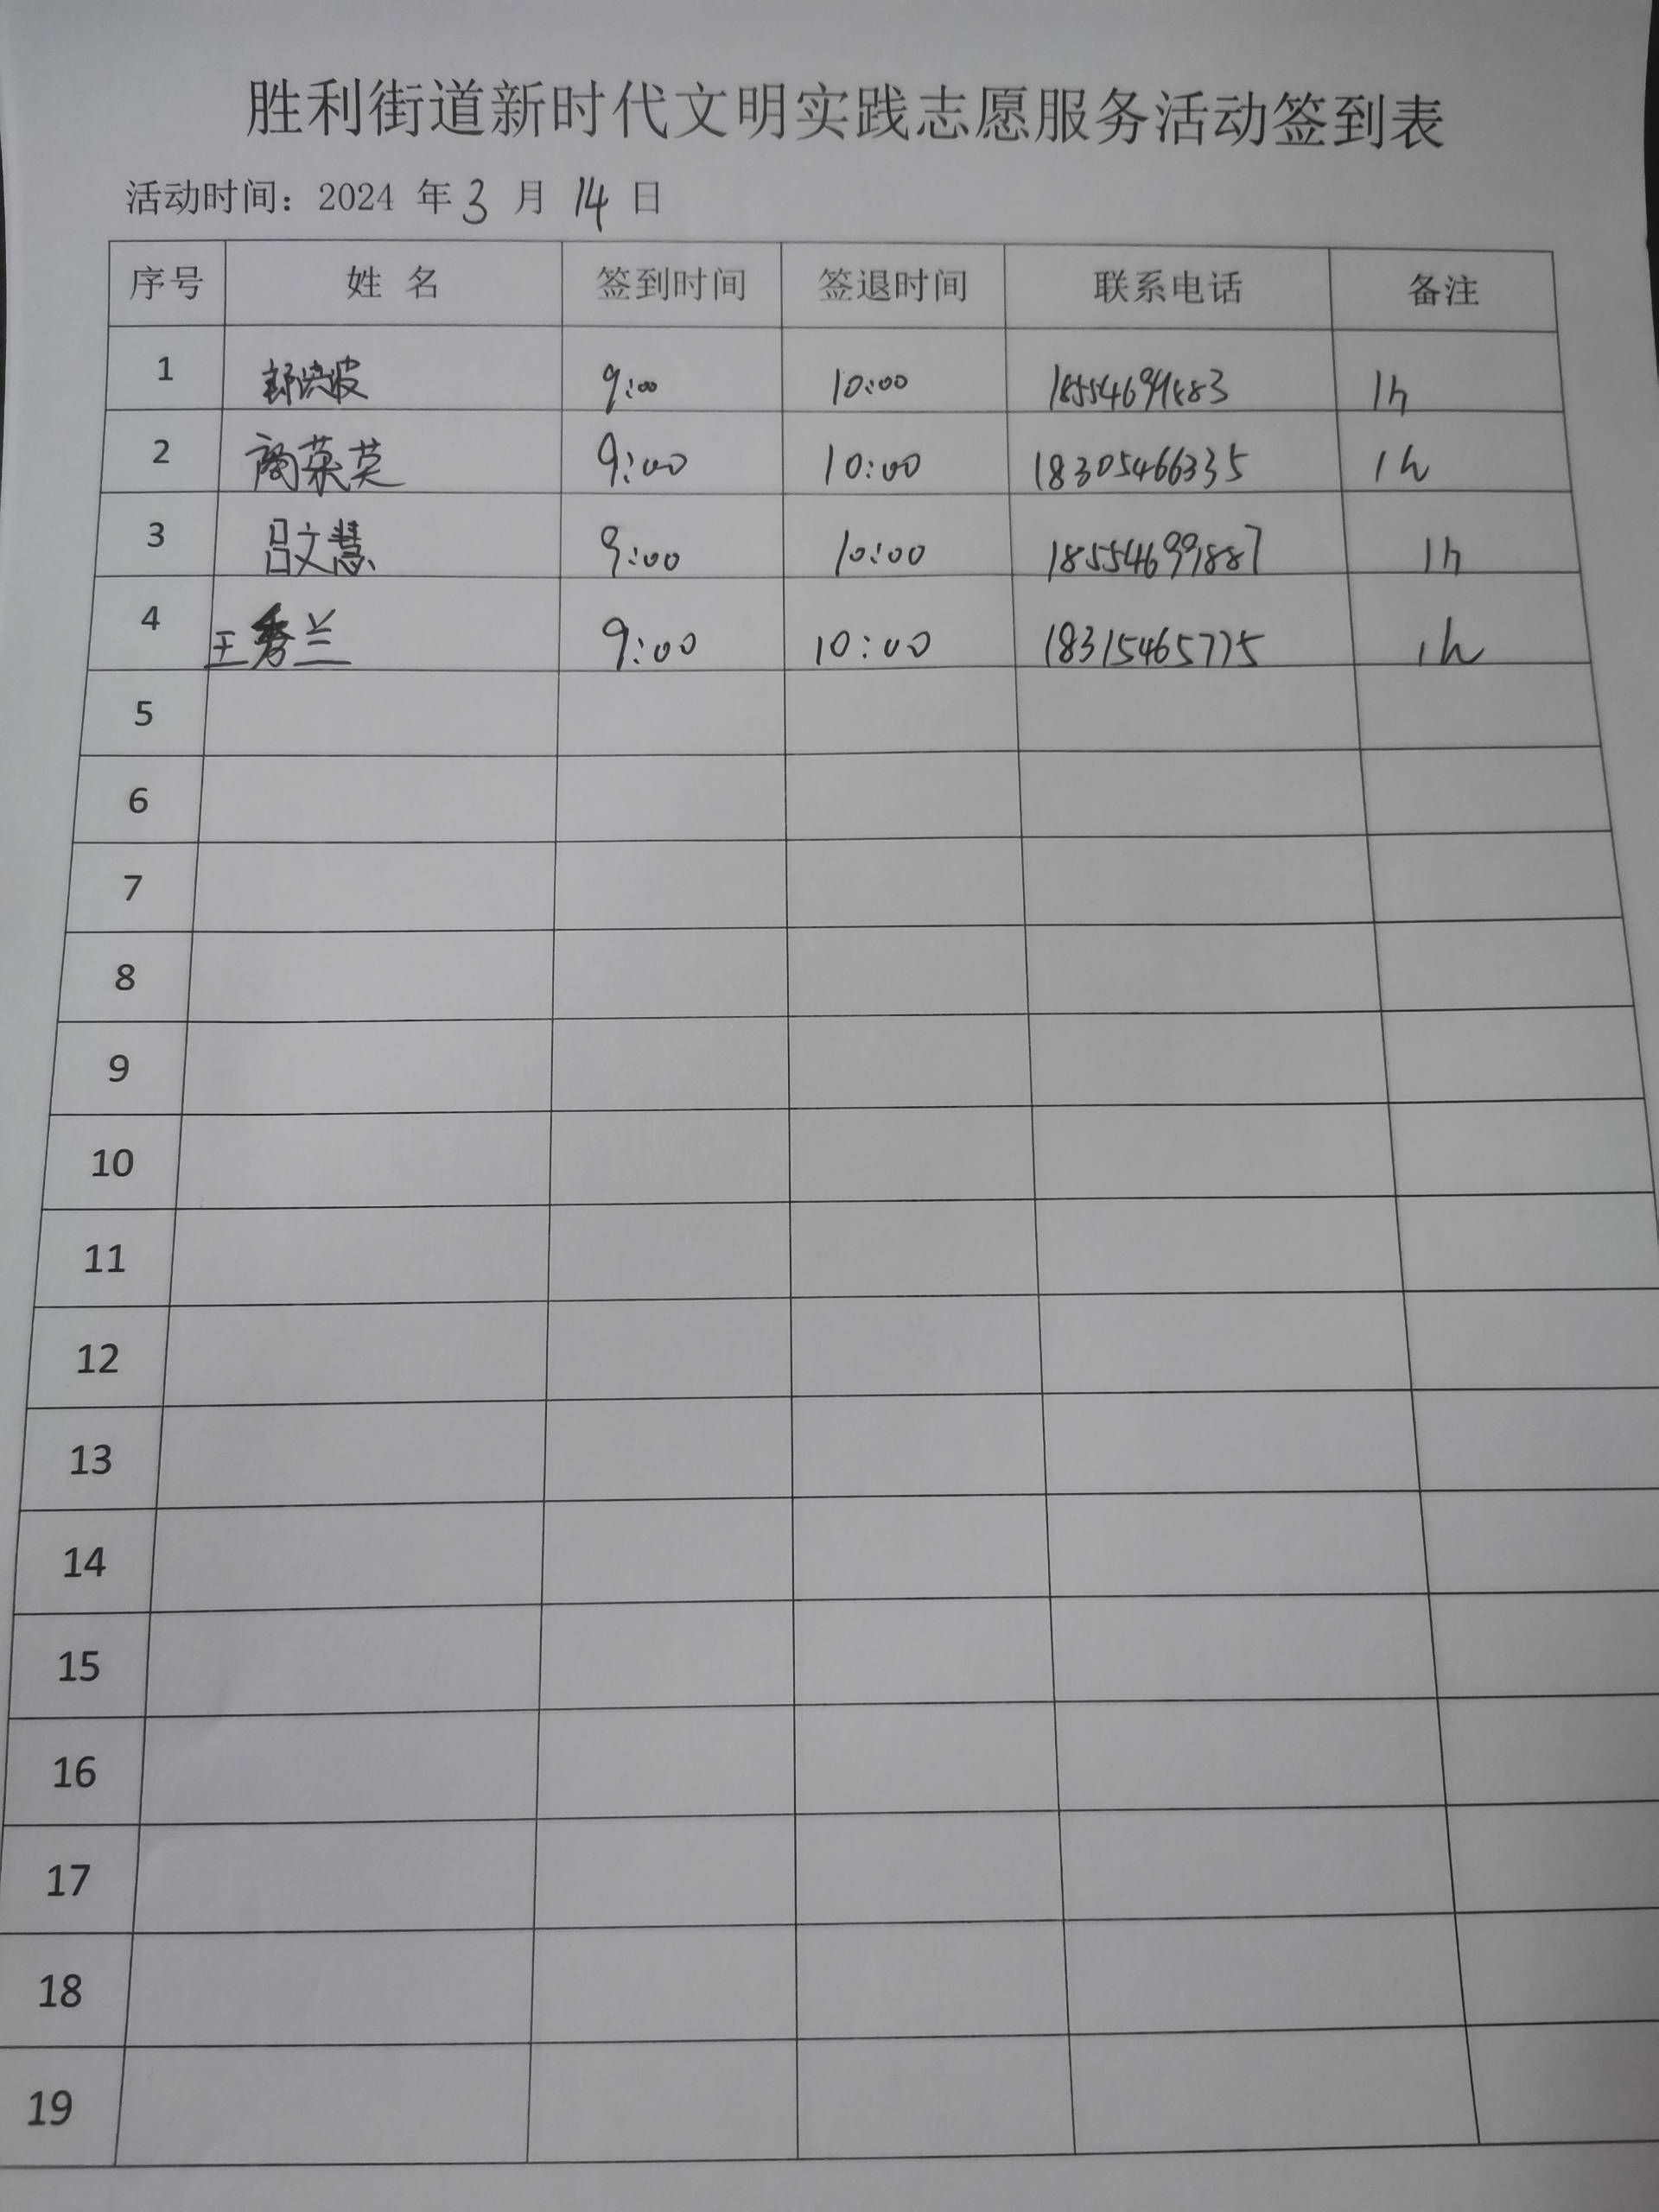 胜利街道新时代文明实践志愿服务活动签到表
活动时间：2024 年 3 月 14 日
序号 姓 名 签到时间 签退时间 联系电话 备注
1 9:00 10:00 1h
2 9:00 10:00 18305466335 1h
3 吕文慧 9:00 10:00 18554699887 1h
4 王秀兰 9:00 10:00 18315465775 1h
5
6
7
8
9
10
11
12
13
14
15
16
17
18
19